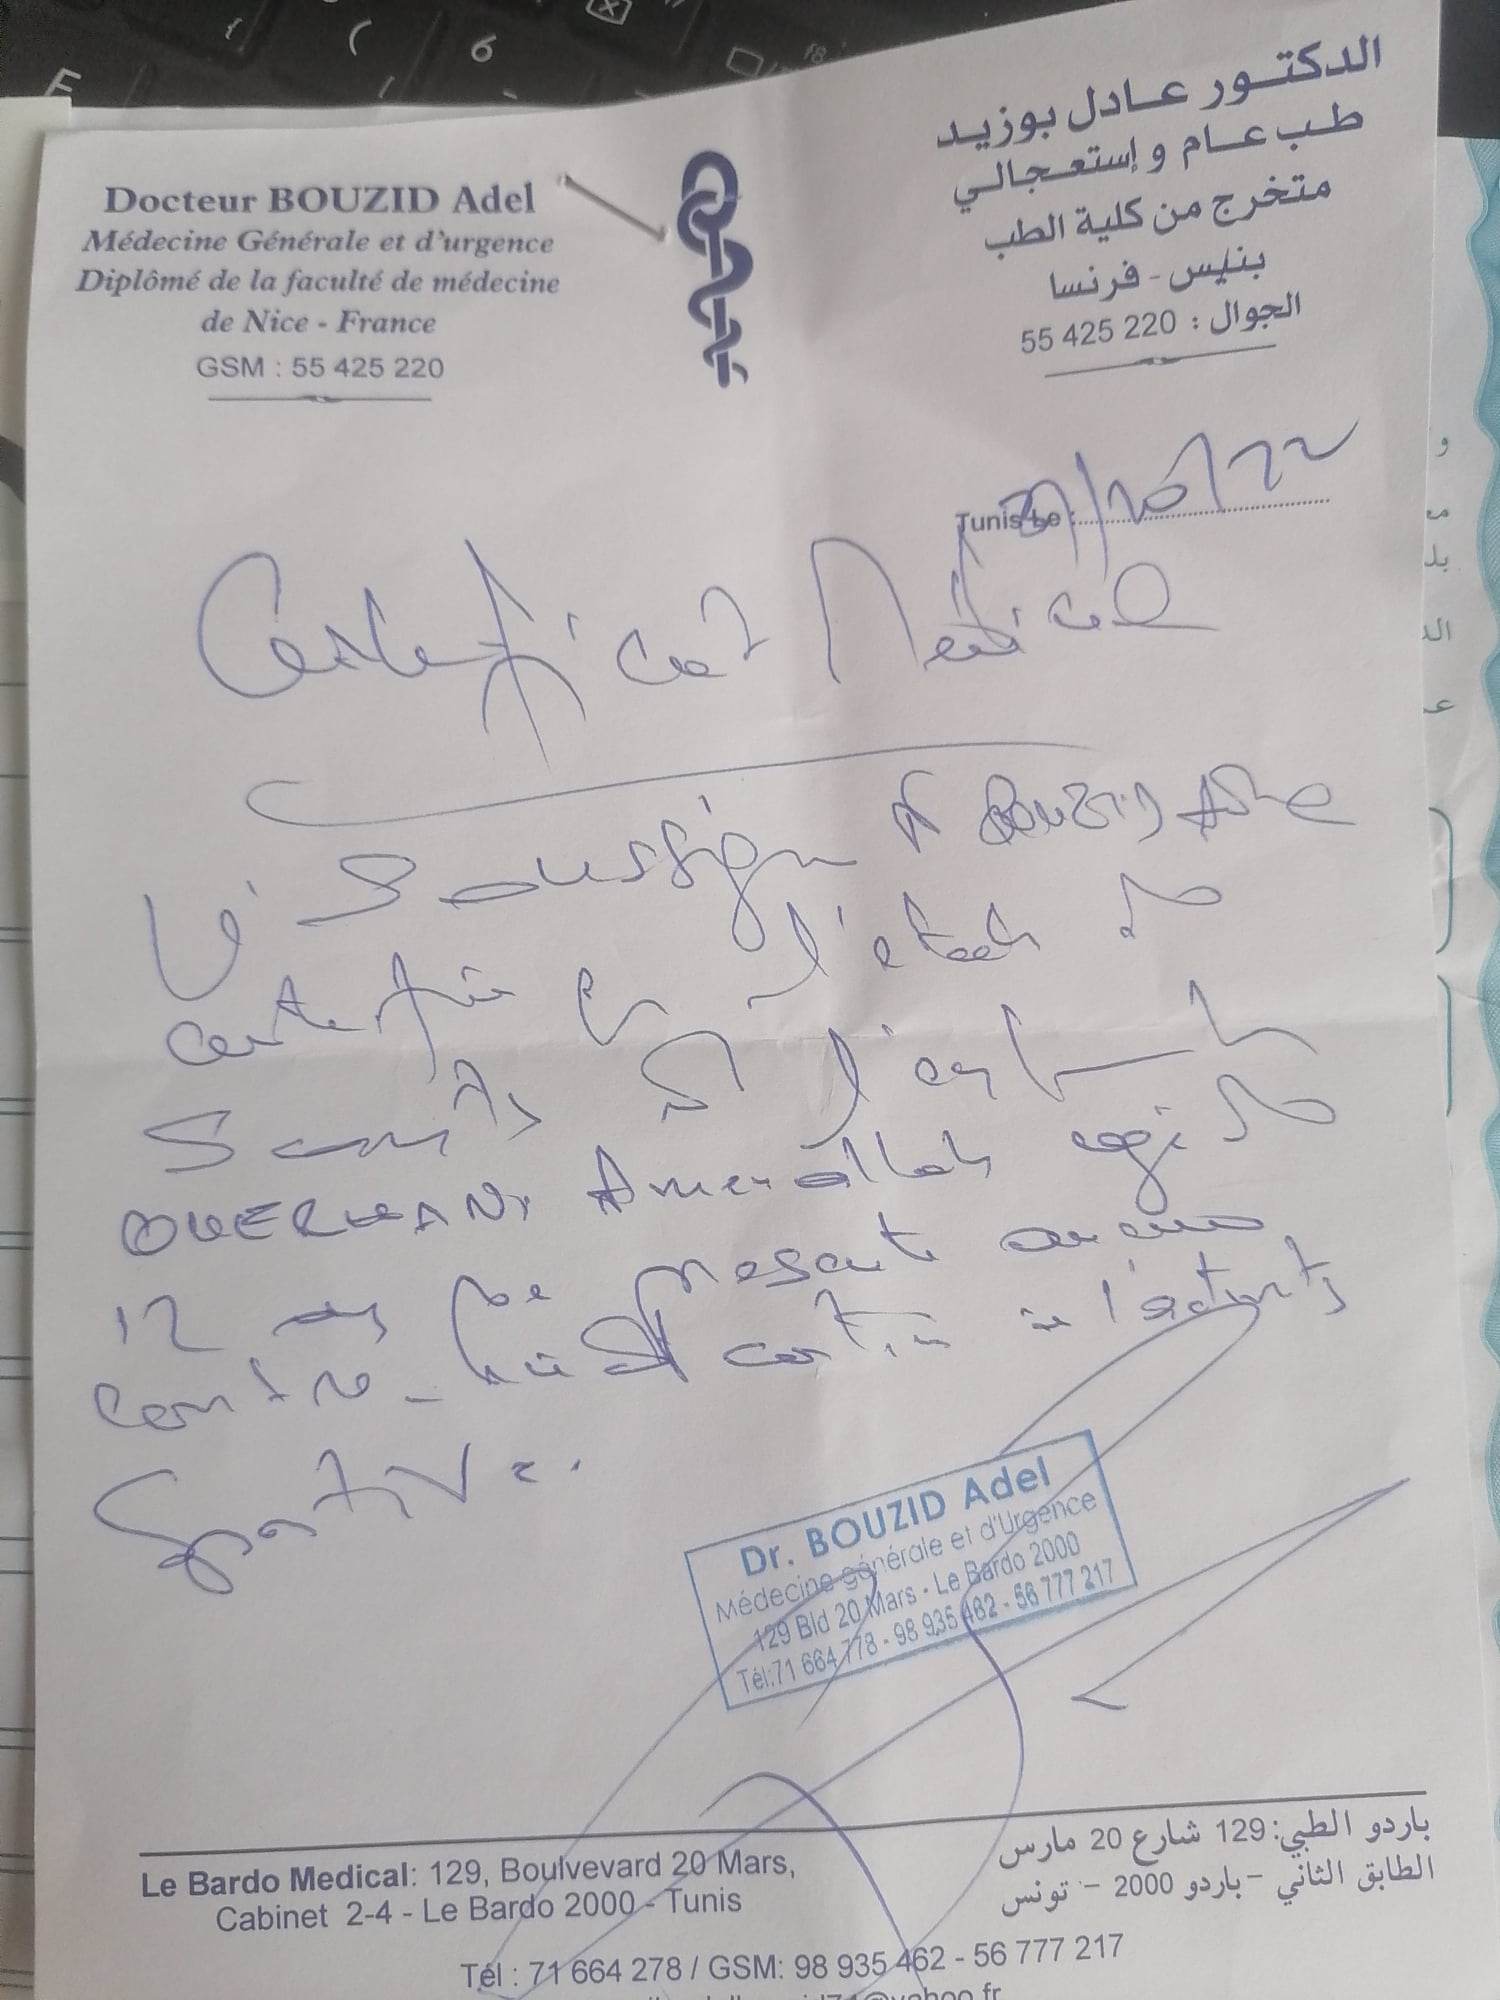 Docteur BOUZID Adel
Médecine Générale et d'urgence
Diplômé de la faculté de médecine
de Nice - France
GSM : 55 425 220
الدكتور عادل بوزيد
طب عام و إستعجالي
متخرج من كلية الطب
بنيس - فرنسا
الجوال : 220 425 55
Tunis Le : /10/22
Certificat Médical
soussigné Dr BOUZID Adel
certifie l'état de
santé l'enfant
OUERHANI Amenallah agé de
12 ans présente aucune
contre-indication à l'activité
Sportive.
Dr. BOUZID Adel
Médecine générale et d'Urgence
129 Bld 20 Mars - Le Bardo 2000
Tél:71 664 778 - 98 935 462 - 56 777 217
Le Bardo Medical: 129, Boulvevard 20 Mars,
Cabinet 2-4 - Le Bardo 2000 - Tunis
باردو الطبي: 129 شارع 20 مارس
الطابق الثاني - باردو 2000 - تونس
Tél : 71 664 278 / GSM: 98 935 462 - 56 777 217